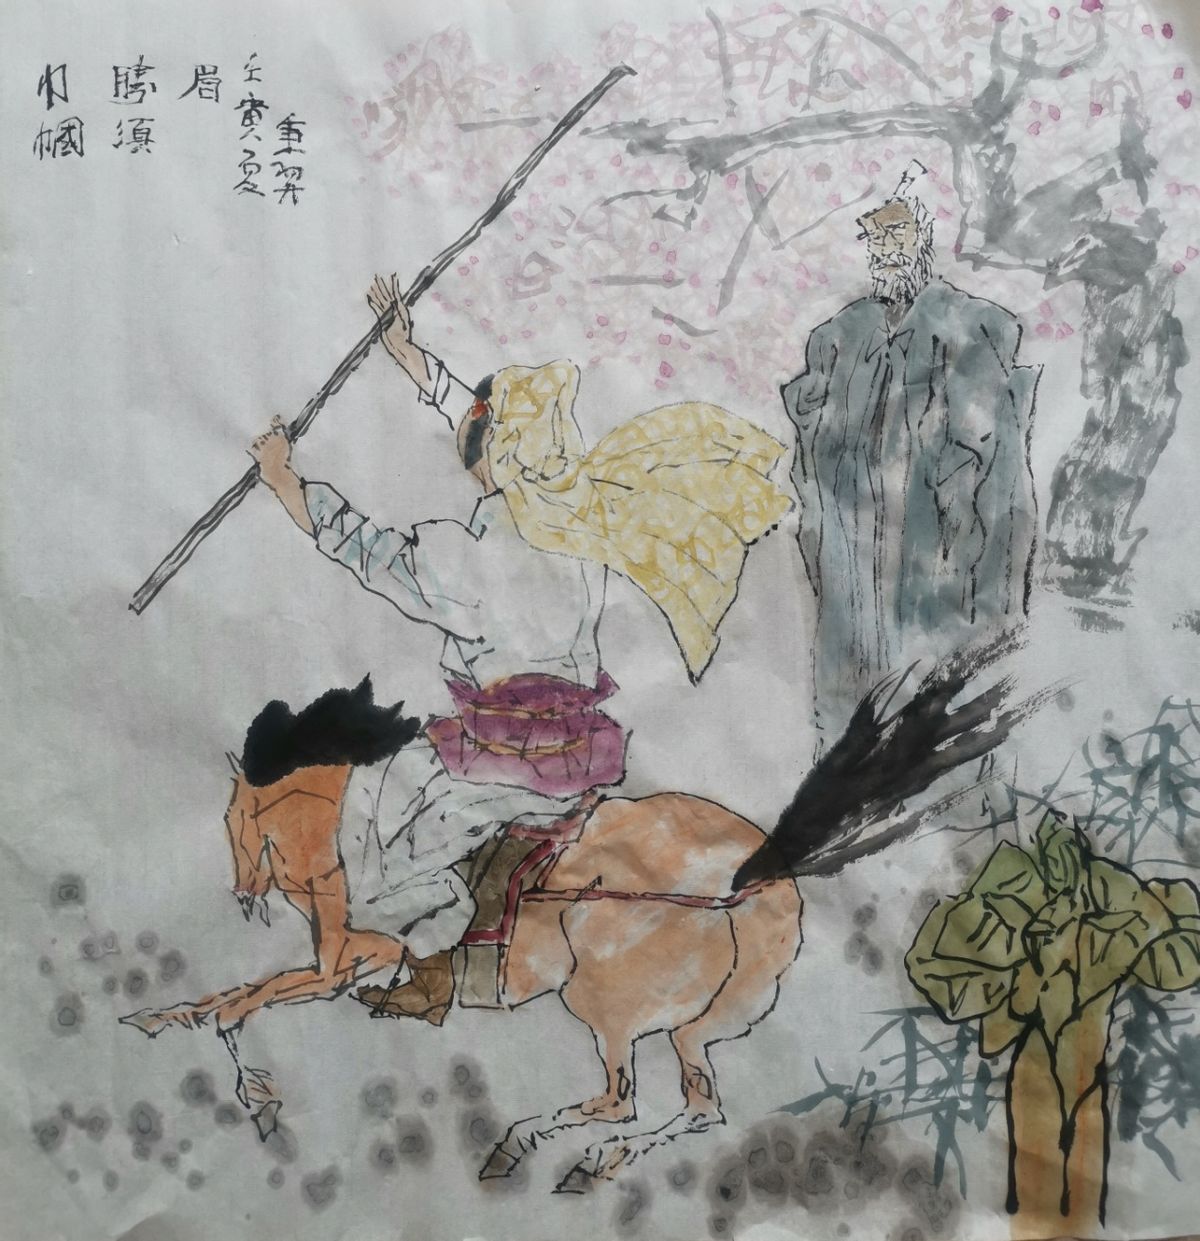 巾幗
勝須
眉
壬寅夏
秉羿